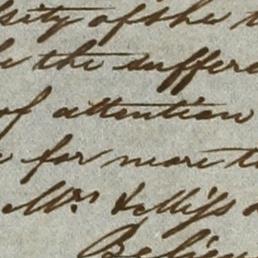 sity of the
the suffer
of attention
for more
Mrs
Believ